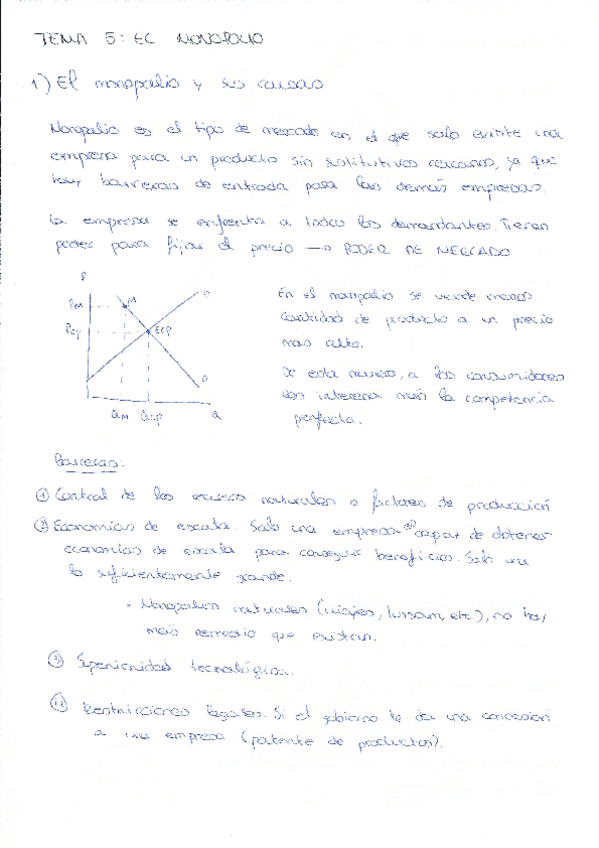 TEMA 5: EL MONOPOLIO
1) El monopolio y sus causas
Monopolio es el tipo de mercado en el que solo existe una
empresa para un producto sin sustitutivos cercanos, ya que
hay barreras de entrada para las demás empresas.
La empresa se enfrenta a todos los demandantes. Tienen
poder para fijar el precio → PODER DE MERCADO
P
PM
M
Pcp
Ecp
D
QM Qcp Q
En el monopolio se vende menos
cantidad de producto a un precio
más alto.
De esta manera, a los consumidores
les interesa más la competencia
perfecta.
Barreras:
① Control de los recursos naturales o factores de producción
② Economías de escala. Solo una empresa es capaz de obtener
economías de escala para conseguir beneficios. Solo una
lo suficientemente grande.
• Monopolios naturales (viajes, etc.), no hay
más remedio que existan.
③ Superioridad tecnológica.
④ Restricciones legales. Si el gobierno le da una concesión
a una empresa (patente de productos).